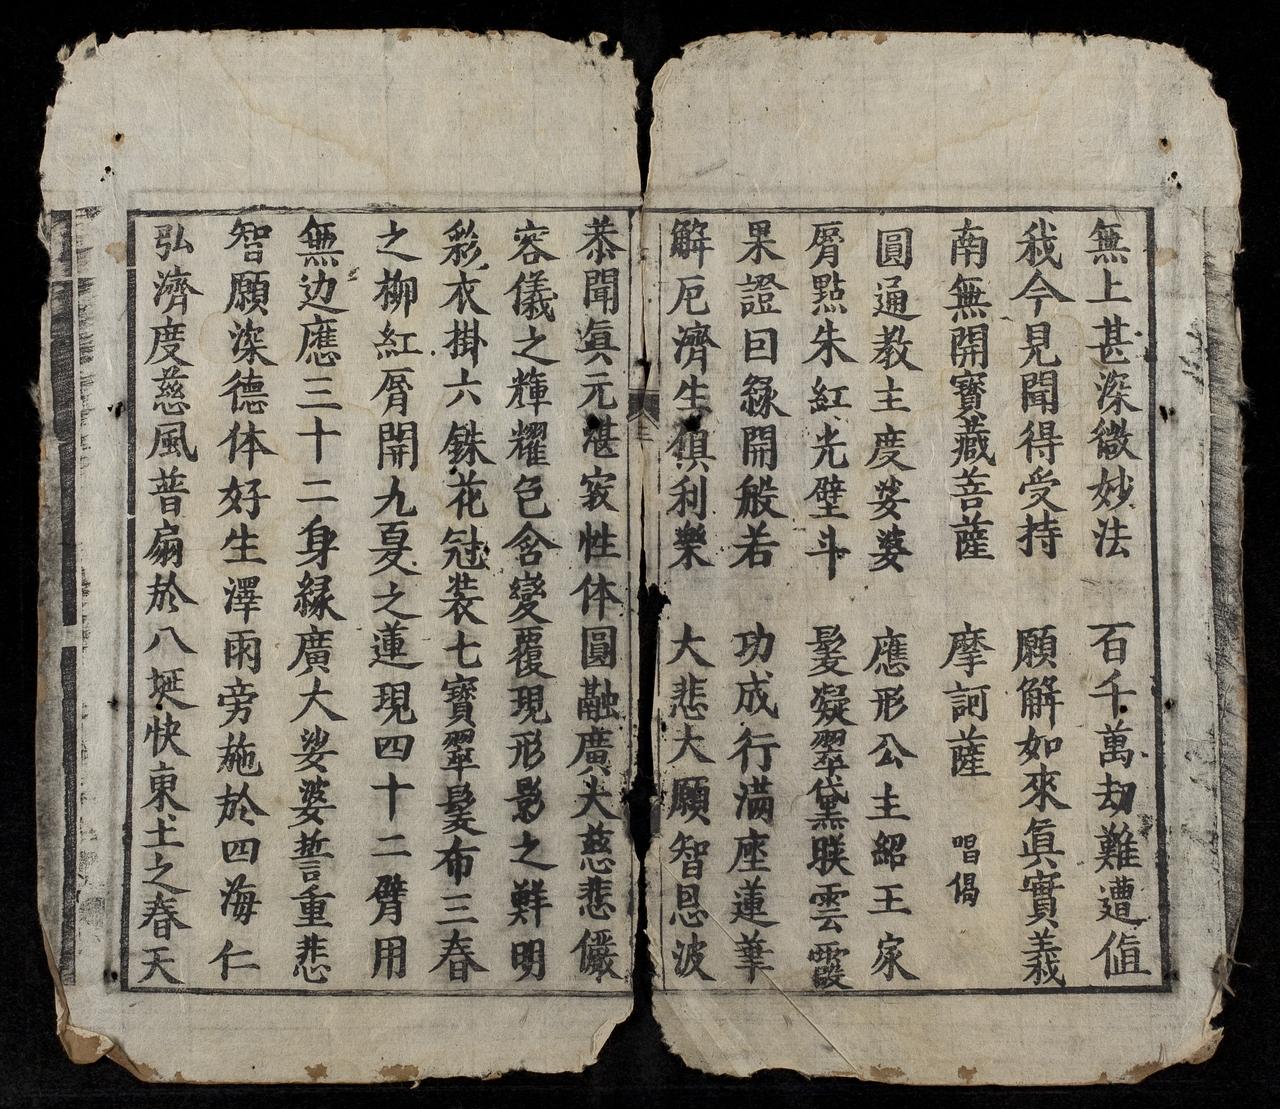 無上甚深微妙法 百千萬劫難遭值
我今見聞得受持 願解如來眞實義
南無開寶藏菩薩 摩訶薩 唱偈
圓通教主度娑婆 應形公主紹王家
唇點朱紅光壁斗 髮凝翠黛联雲霞
果證曰彔開般若 功成行滿座蓮華
解厄濟生俱利樂 大悲大願智恩波
恭聞眞元湛寂性体圓融廣大慈悲儼
容儀之輝耀色含變覆現形影之鮮明
彩衣掛六銖花冠装七寶翠髮布三春
之柳紅唇開九夏之蓮現四十二臂用
無边應三十二身緣廣大娑婆誓重悲
智願深德体好生澤雨旁施於四海仁
弘濟度慈風普扇於八埏快東土之春天